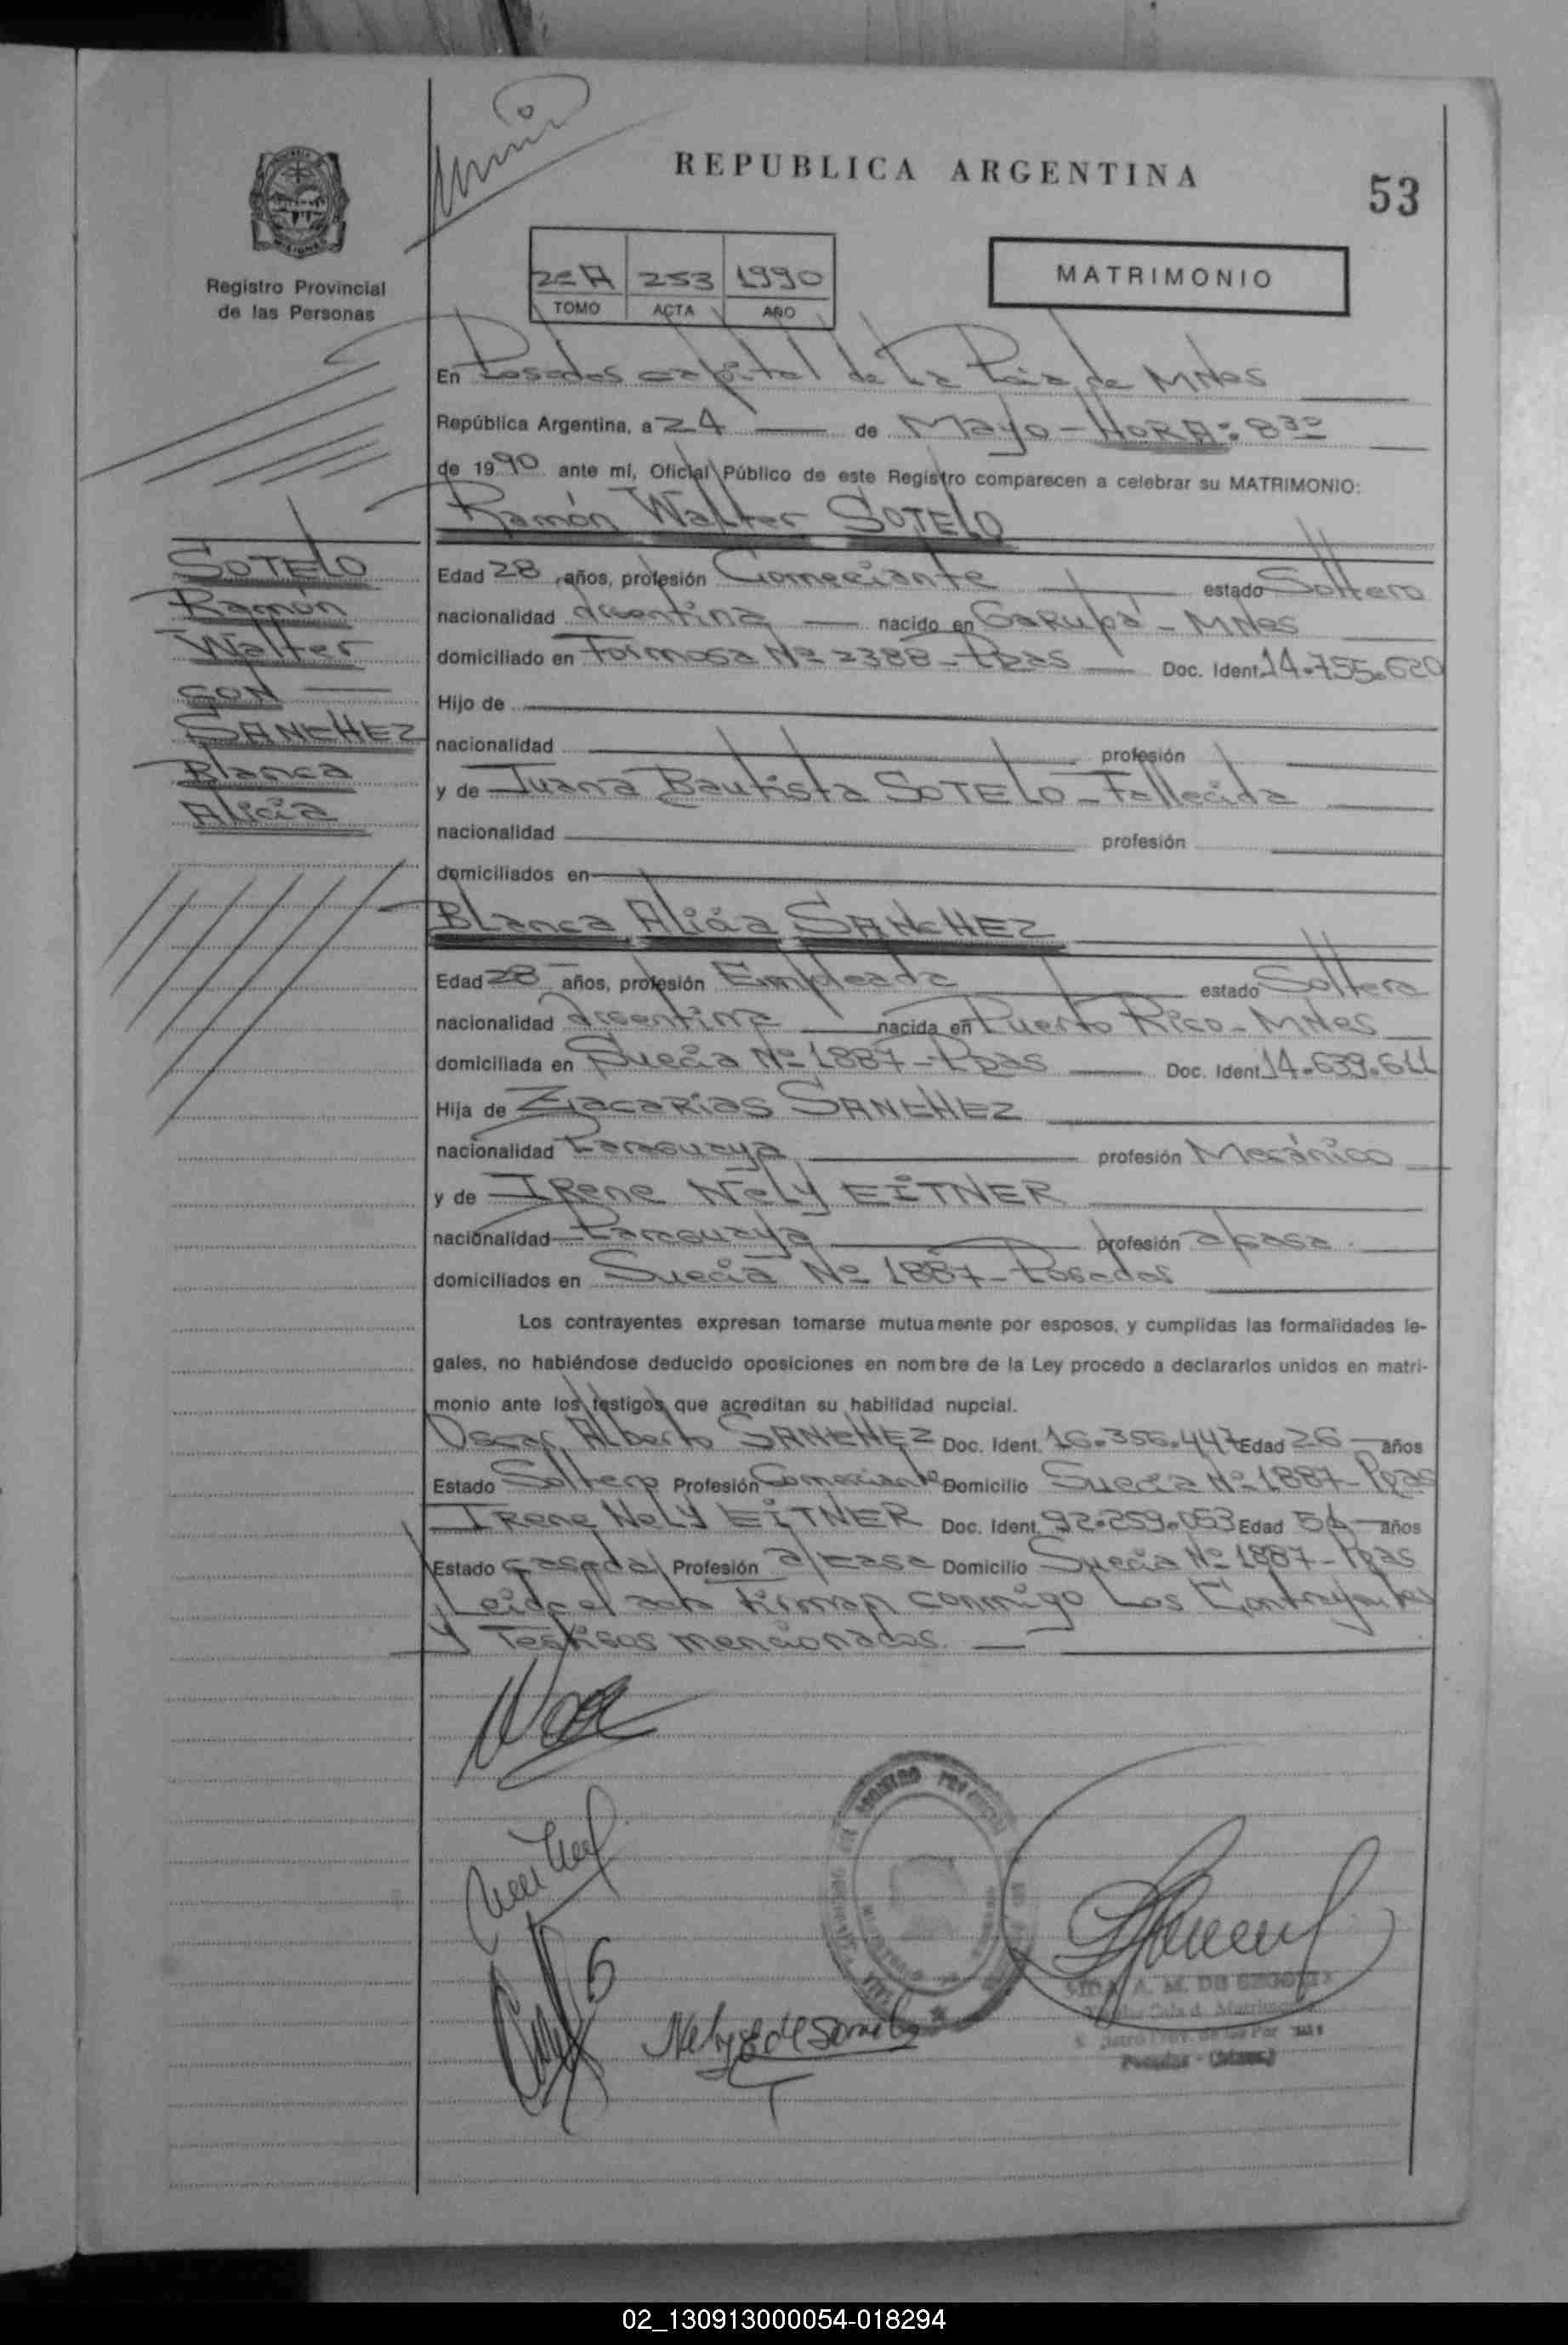 REPUBLICA ARGENTINA
53
Registro Provincial
de las Personas
2º A 253 1990
TOMO ACTA AÑO
MATRIMONIO
En Posadas capital de La Pcia, de MNes
República Argentina, a 24 de Mayo - HORA: 8 30
de 1990 ante mí, Oficial Público de este Registro comparecen a celebrar su MATRIMONIO:
Ramón Walter SOTELO
SOTELO
Ramón
Walter
CON
SANCHEZ
Blanca
Alicia
Edad 28 años, profesión Comerciante estado Soltero
nacionalidad Argentina nacido en Garupá - MNes
domiciliado en Formosa Nº 2388 - Ppas Doc. Ident. 14.755.620
Hijo de
nacionalidad profesión
y de Juana Bautista SOTELO - Fallecida
nacionalidad profesión
domiciliados en
Blanca Alicia SANCHEZ
Edad 28 años, profesión Empleada estado Soltera
nacionalidad Argentina nacida en Puerto Rico - MNes
domiciliada en Suecia Nº 1887 - Ppas Doc. Ident. 14.639.611
Hija de Zacarias SANCHEZ
nacionalidad Paraguaya profesión Mecánico
y de IRene Nely EITNER
nacionalidad Paraguaya profesión a/casa.
domiciliados en Suecia Nº 1887 - Posadas
Los contrayentes expresan tomarse mutuamente por esposos, y cumplidas las formalidades le-
gales, no habiéndose deducido oposiciones en nombre de la Ley procedo a declararlos unidos en matri-
monio ante los testigos que acreditan su habilidad nupcial.
Oscar Alberto SANCHEZ Doc. Ident. 16.356.447 Edad 26 años
Estado Soltero Profesión Comerciante Domicilio Suecia Nº 1887 - Ppas
IRene Nely EITNER Doc. Ident. 92.259.053 Edad años
Estado casada Profesión a/casa Domicilio Suecia Nº 1887 - Ppas
Leida el acta firman conmigo Los Contrayentes
y Testigos mencionados.
A. M. DE
Posadas - (Mnes.)
02_130913000054-018294